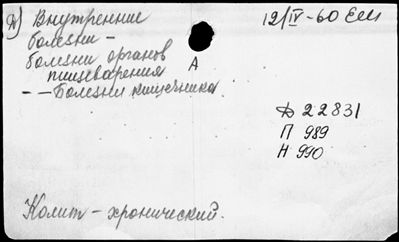 Д) Внутренние
болезни -
болезни органов
пищеварения
- - Болезни кишечника.
А
12/IV - 60
Д 22831
П 989
Н 990
Колит - хронический.